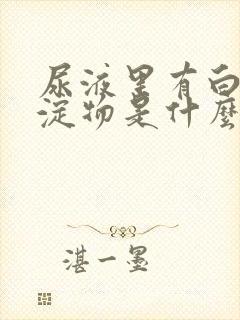 尿液里有白
淀物是什麼
湛一墨